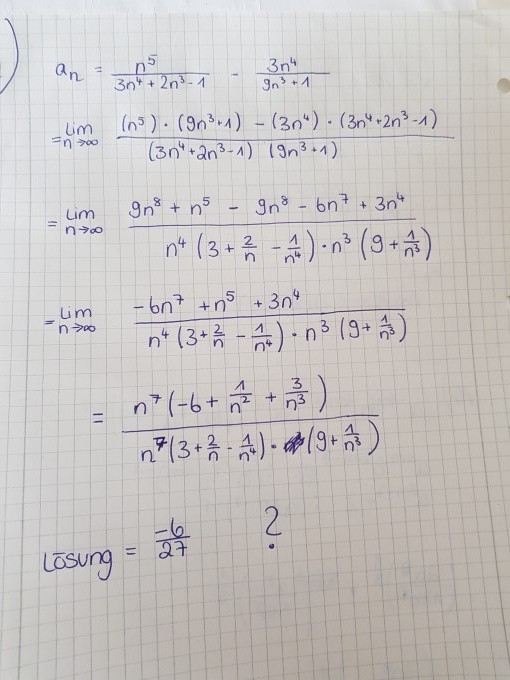 aₙ = n⁵/(3n⁴+2n³-1) - 3n⁴/(9n³+1)
= lim n→∞ ((n⁵)·(9n³+1) - (3n⁴)·(3n⁴+2n³-1))/((3n⁴+2n³-1) (9n³+1))
= lim n→∞ (9n⁸ + n⁵ - 9n⁸ - 6n⁷ + 3n⁴)/(n⁴(3+2/n-1/n⁴)·n³(9+1/n³))
= lim n→∞ (-6n⁷ +n⁵ +3n⁴)/(n⁴(3+2/n-1/n⁴)·n³(9+1/n³))
= n⁷(-6+1/n²+3/n³)/(n⁷(3+2/n-1/n⁴)·(9+1/n³))
Lösung = -6/27 ?